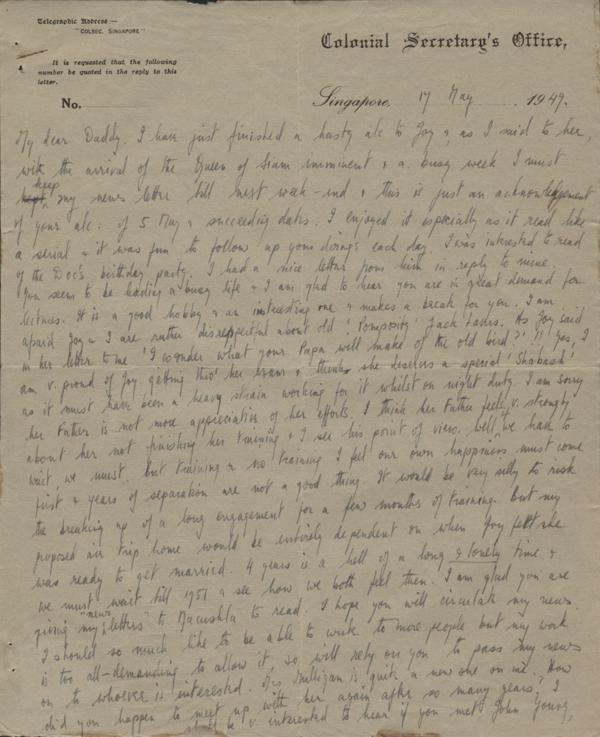 Telegraphic Address:—
"COLSEC, SINGAPORE"
Colonial Secretary's Office,
It is requested that the following
number be quoted in the reply to this
letter.
No.
Singapore, 17 May 1949.
My dear Daddy. I have just finished a hasty a/c to Joy &, as I said to her,
with the arrival of the Queen of Siam imminent & a busy week I must
kept keep my news letter till next week-end & this is just an acknowledgement
of your a/c: of 5 May & succeeding dates. I enjoyed it especially as it read like
a serial & it was fun to follow up your doings each day. I was interested to read
of the Doc's birthday party. I had a nice letter from him in reply to mine.
You seem to be leading a busy life & I am glad to hear you are in great demand for
lectures. It is a good hobby & an interesting one & makes a break for you. I am
afraid Joy & I are rather disrespectful about old 'Pomposity' Jack . As Joy said
in her letter to me 'I wonder what your Papa will make of the old bird?'!! Yes, I
am v. proud of Joy getting thro' her exam & think she deserves a special 'Shabash'
as it must have been a heavy strain working for it whilst on night duty. I am sorry
her Father is not more appreciative of her efforts. I think her Father feels v. strongly
about her not finishing her training & I see his point of view. Well, we had to
wait we must. But training or no training I feel our own happiness must come
first & years of separation are not a good thing. It would be very silly to risk
the breaking up of a long engagement for a few months of training. But my
proposed air trip home would be entirely dependent on when Joy felt she
was ready to get married. 4 years is a hell of a long & lonely time &
we must wait till 1951 & see how we both feel then. I am glad you are
giving my "news letters" to Macushla to read. I hope you will circulate my news.
I should so much like to be able to write to more people but my work
is too all-demanding to allow it, so will rely on you to pass my news
on to whoever is interested. Mrs Mulligan is quite a new one on me. How
did you happen to meet up with her again after so many years? I
shall be v. interested to hear if you met John Young,